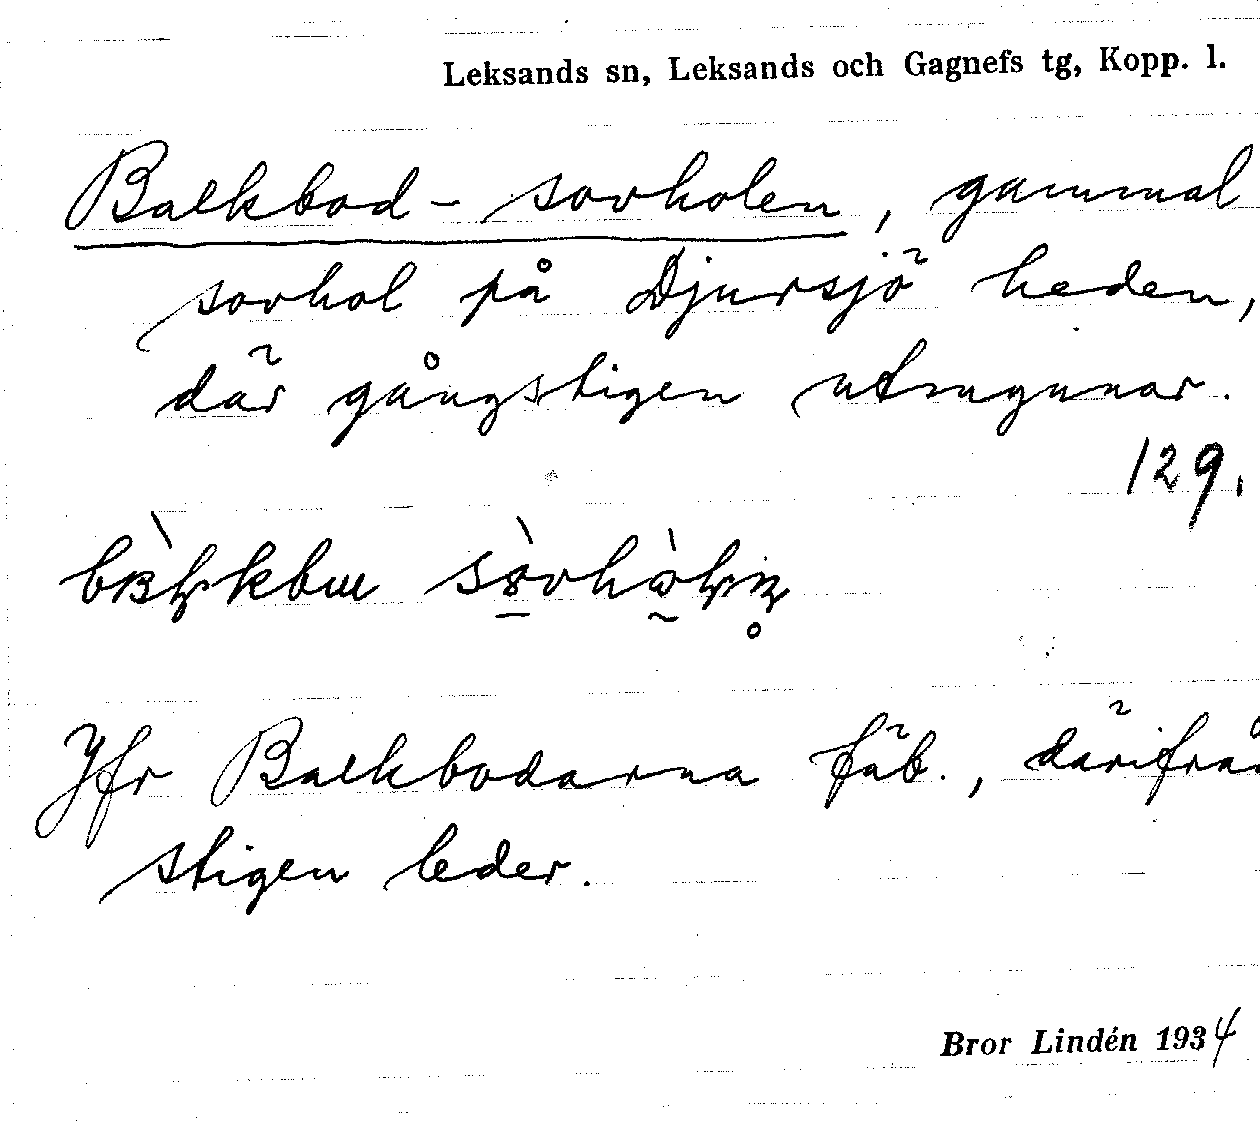 Leksands sn, Leksands och Gagnefs tg, Kopp. l.
Balkbod-sovholen, gammal
sovhol på Djursjöheden,
där gångstigen utmynnar.
129.
Jfr Balkbodarna fäb., därifrån
stigen leder.
Bror Lindén 1934